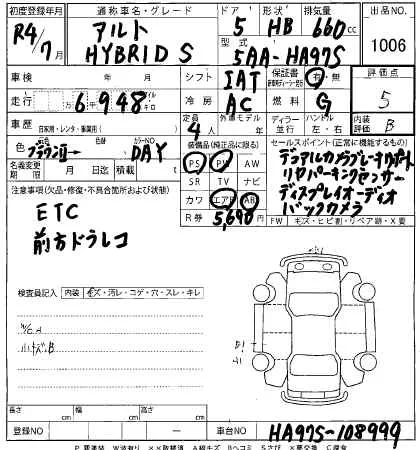 初度登録年月 通称車名・グレード ドア 形状 排気量 出品NO.
R4/7月 アルト HYBRID S 5 HB 660cc 1006
型式 5AA-HA97S
車検 年 月 シフト IAT 保証書 有・無 評価点
走行 6,948 キロ 冷房 AC 燃料 G 5
車歴 自家用・レンタ・事業用( ) 定員 4人 外車モデル 年 ディーラー 並行 ハンドル 左 右 内装評価 B
色 ブラウンII カラーNO DAY 装備品(純正品に限る) セールスポイント(正常に機能するもの)
名義変更期限 月 日迄 積載 PS PW AW デュアルカメラブレーキサポート
注意事項(欠品・修復・不具合箇所および状態) SR TV ナビ リヤパーキングセンサー
ETC カワ エアB AB ディスプレイオーディオ
前方ドラレコ R券 5,690円 バックカメラ
FW キズ・ヒビ割・リペア跡・X要
検査員記入 内装 キズ・汚レ・コゲ・穴・スレ・キレ
小キズ・B
長さ cm 幅 cm 高さ cm
登録NO ー 車台NO HA97S-108999
P.要塗装 W波有り XX取替済 A線キズ Bヘコミ Sさび X要交換 C腐食